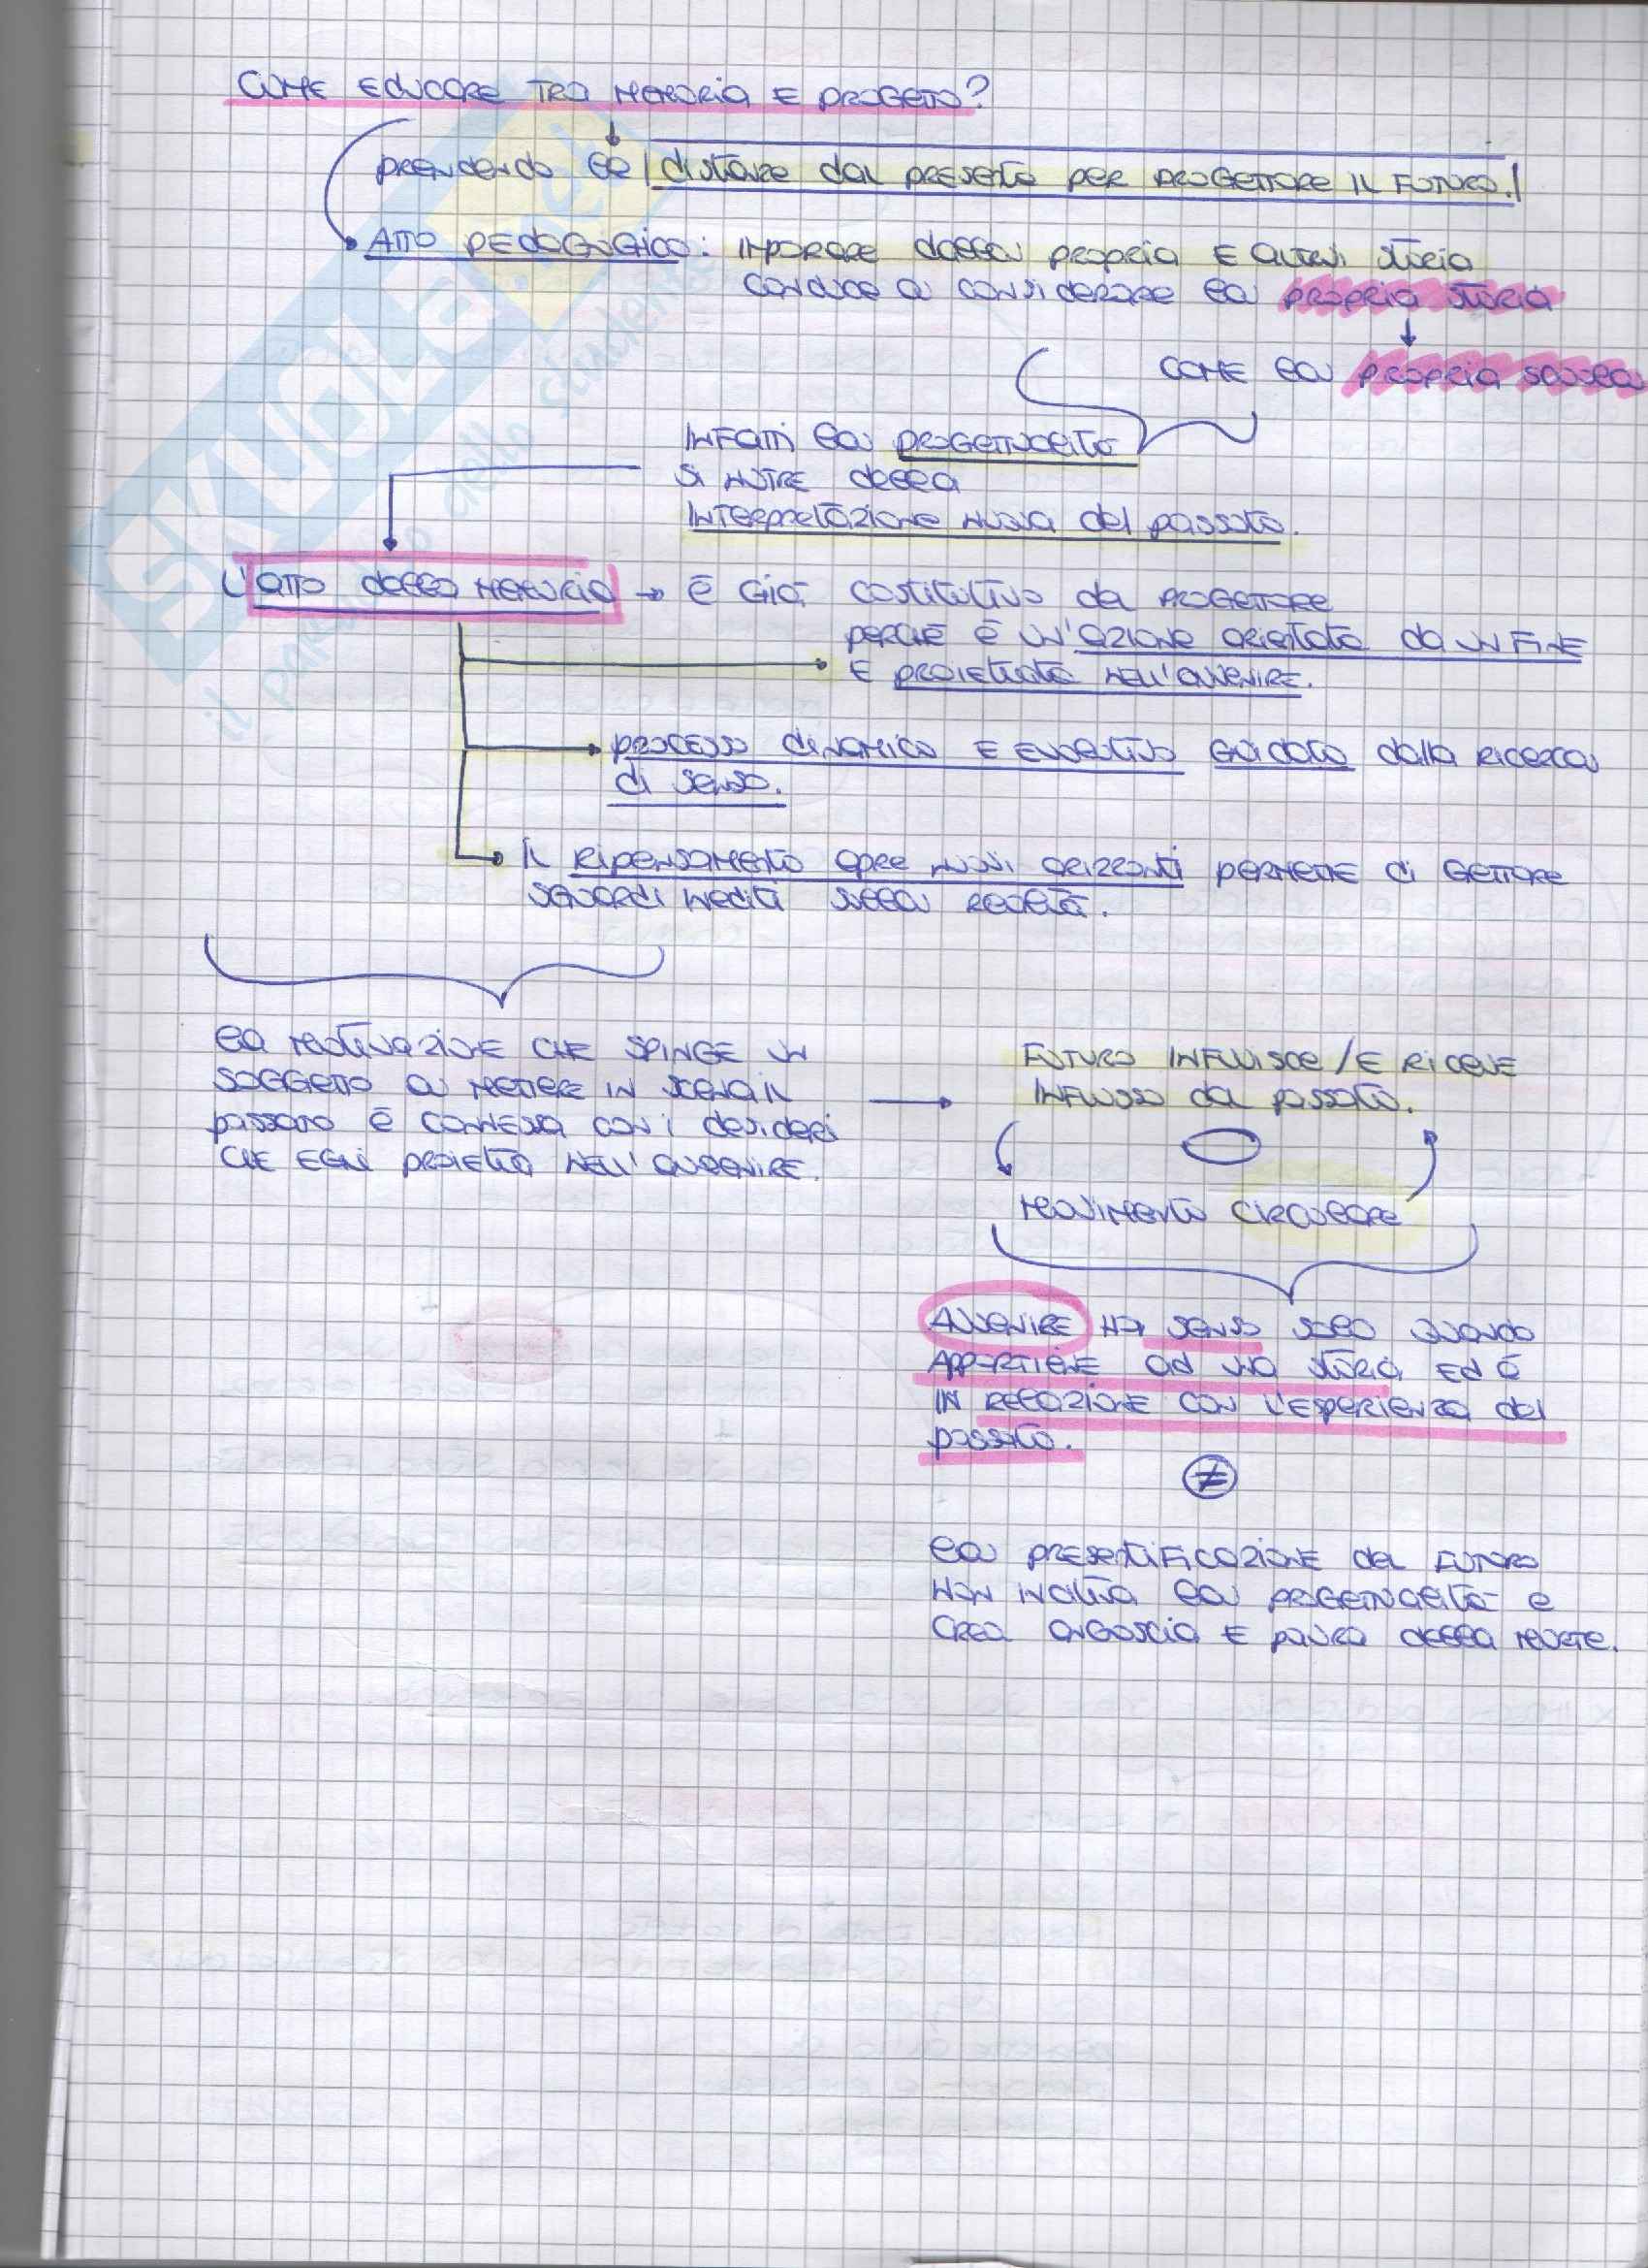 COME EDUCARE TRA MEMORIA E PROGETTO?
prendendo le distanze dal presente per progettare il futuro.
ATTO PEDAGOGICO: imparare dalla propria e altrui storia
conduce a considerare la propria storia
come la propria scuola
infatti la progettualità
si nutre della
interpretazione nuova del passato.
L'atto della memoria → è già costitutivo del progettare
perché è un'azione orientata da un fine
e proiettata nell'avvenire.
processo dinamico e evolutivo guidato dalla ricerca
di senso.
il ripensamento apre nuovi orizzonti permette di gettare
sguardi inediti sulla realtà.
la motivazione che spinge un
soggetto a mettere in scena il
passato è connessa con i desideri
che egli proietta nell'avvenire.
futuro influisce / e riceve
influsso dal passato.
movimento circolare
AVVENIRE ha senso solo quando
appartiene ad una storia ed è
in relazione con l'esperienza del
passato.
≠
la presentificazione del futuro
non incita la progettualità e
crea angoscia e paura della morte.
SKUOLA.net
il paradiso dello studente